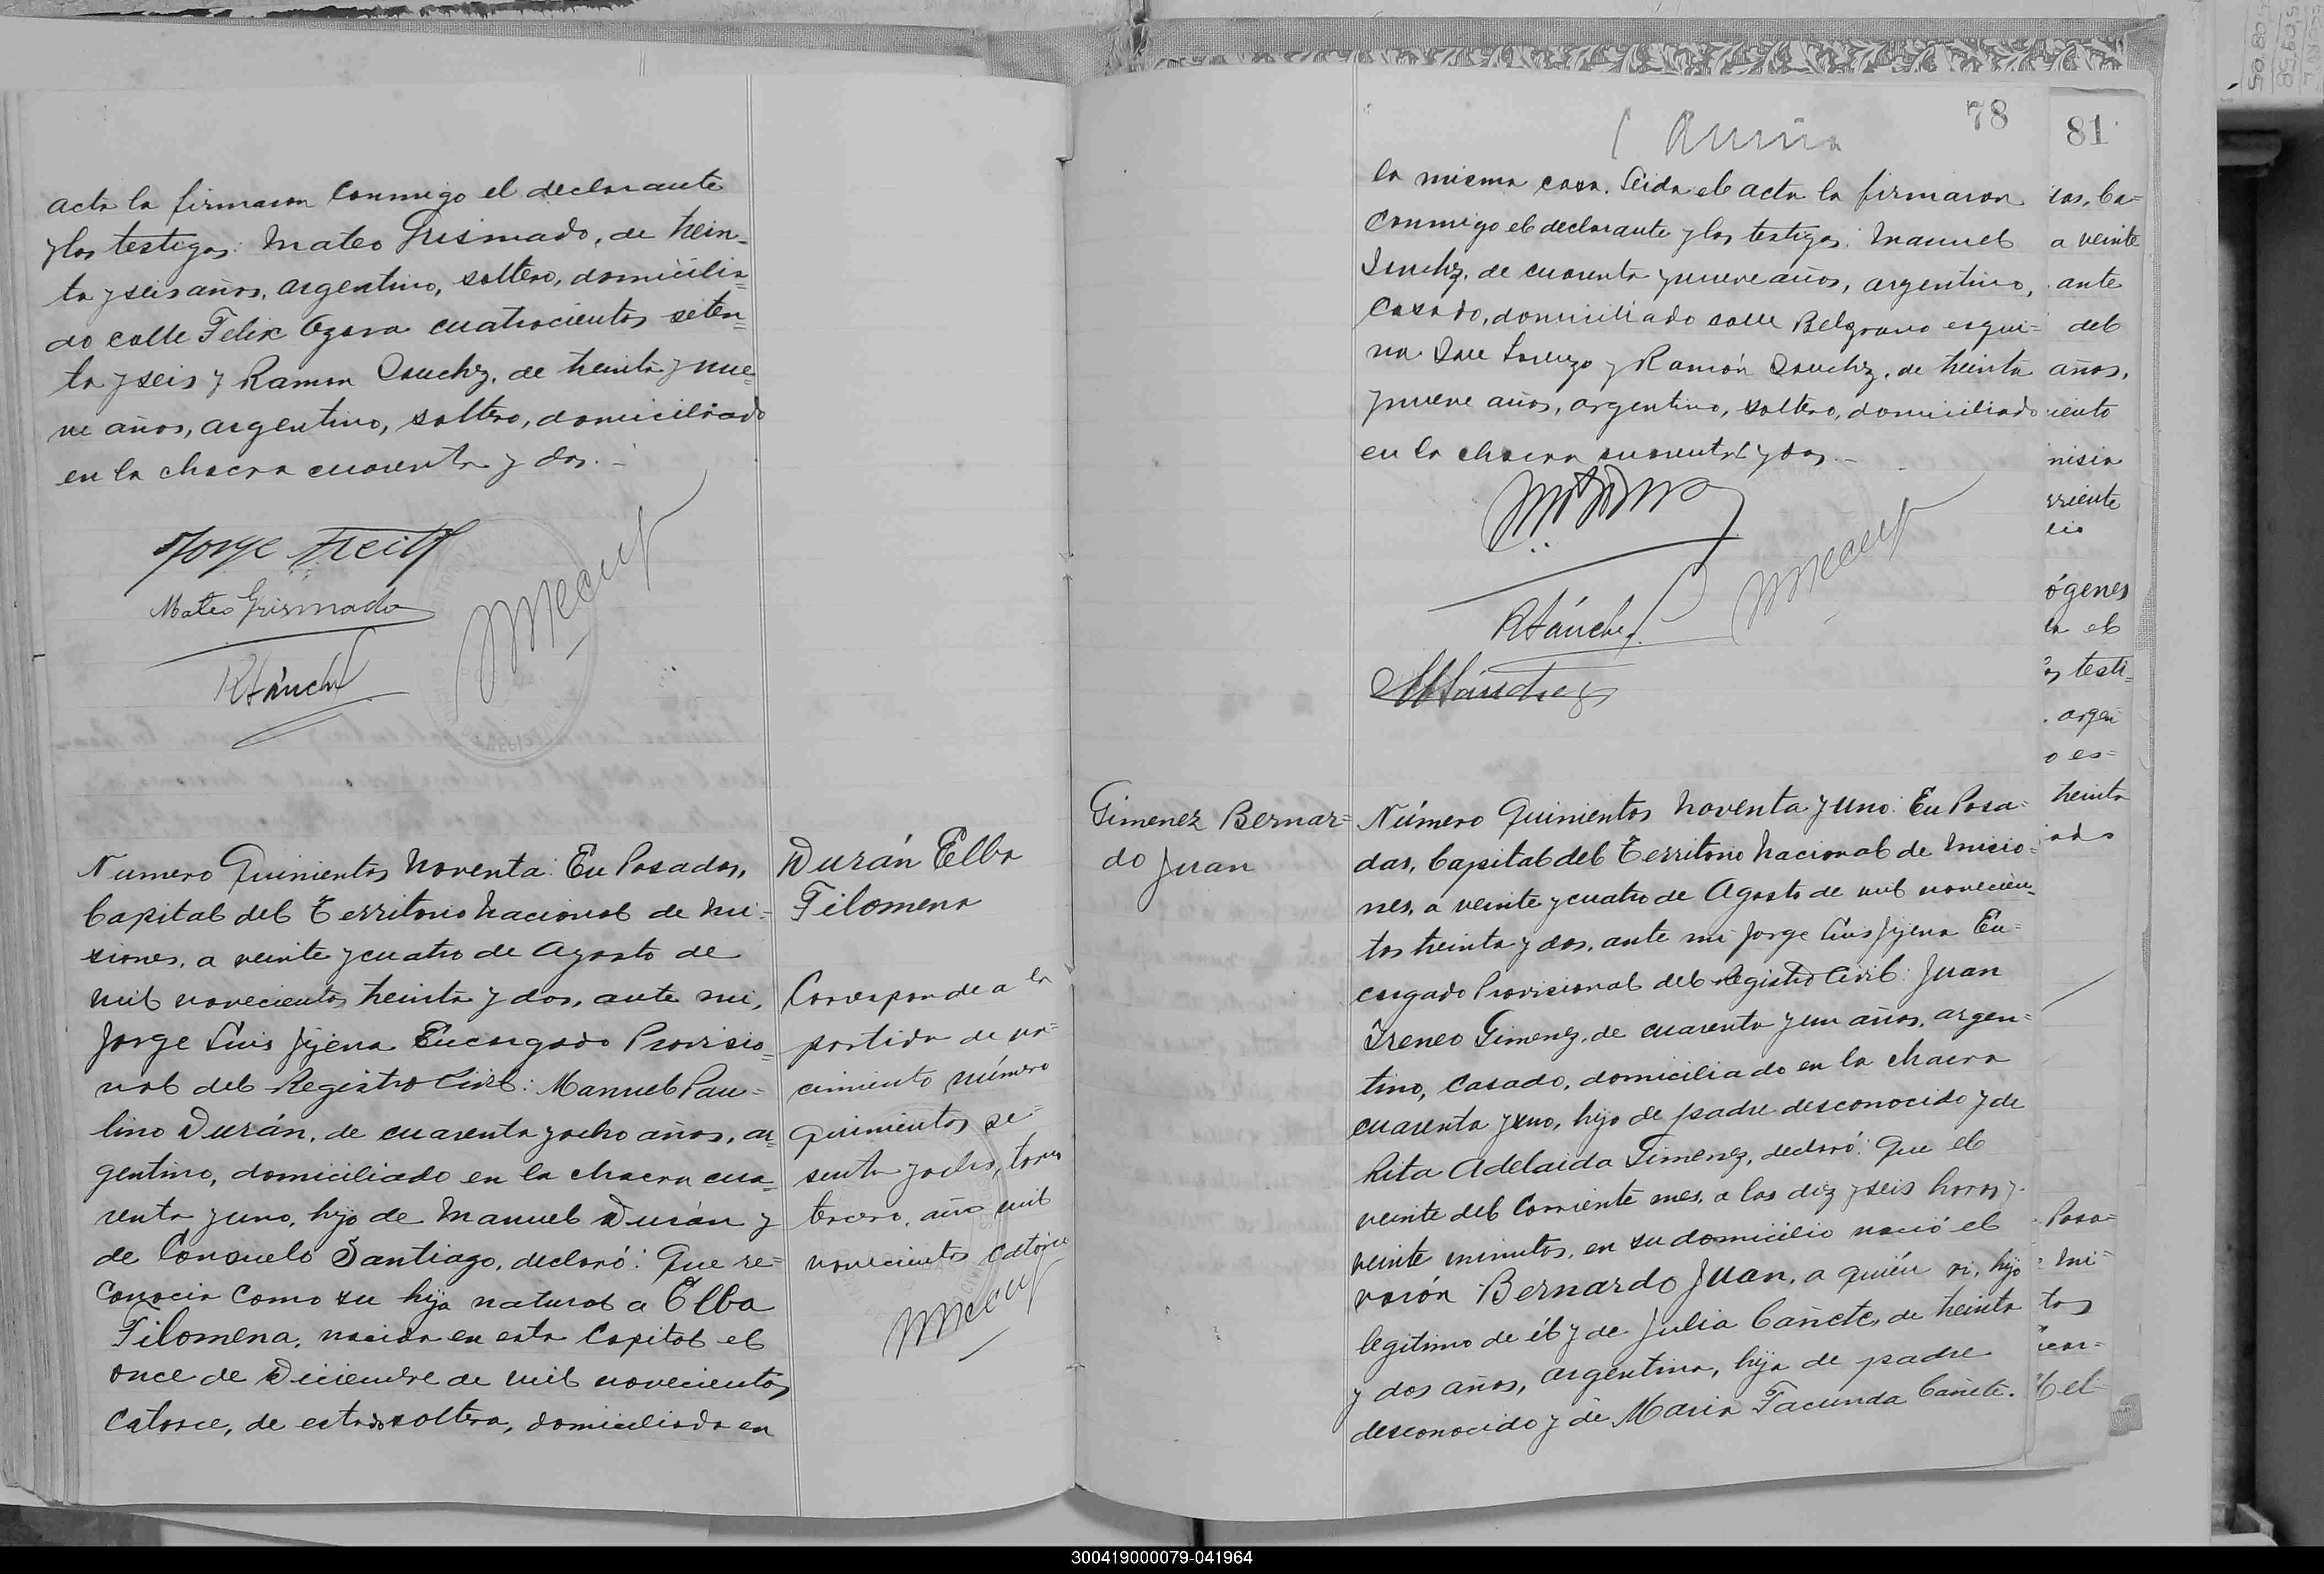 acta la firmaron conmigo el declarante
y los testigos: Mateo Grismado, de trein=
ta y seis años, argentino, soltero, domicilia=
do calle Felix Azara cuatrocientos seten=
ta y seis y Ramon Sanchez, de treinta y nue=
ve años, argentino, soltero, domiciliado
en la chacra cuarenta y dos.-
Jorge
Mateo Grismado
RSánchez
Numero Quinientos Noventa: En Posadas,
Capital del Territorio Nacional de Mi=
siones, a veinte y cuatro de Agosto de
mil novecientos treinta y dos, ante mi,
Jorge Luis Jijena Encargado Provisio=
nal del Registro Civil: Manuel Pau=
lino Durán, de cuarenta y ocho años, ar=
gentino, domiciliado en la chacra cua=
renta y uno, hijo de Manuel Durán y
de Consuelo Santiago, declaró: Que re=
conocia como su hija natural a Elba
Filomena, nacida en esta Capital el
once de Diciembre de mil novecientos
catorce, de estado soltera, domiciliada en
Durán Elba
Filomena
Corresponde a la
partida de na=
cimiento número
quinientos se=
senta y ocho, tomo
tercero, año mil
novecientos catorce
78
la misma casa. Leida el acta la firmaron
conmigo el declarante y los testigos: Manuel
Sanchez, de cuarenta y nueve años, argentino,
casado, domiciliado calle Belgrano esqui=
na San Lorenzo y Ramón Sanchez, de treinta
y nueve años, argentino, soltero, domiciliado
en la chacra cuarenta y dos.-
RSánchez
MSánchez
Gimenez Bernar=
do Juan
Número Quinientos Noventa y uno: En Posa=
das, Capital del Territorio Nacional de Misio=
nes, a veinte y cuatro de Agosto de mil novecien=
tos treinta y dos, ante mi Jorge Luis Jijena En=
cargado Provisional del Registro Civil: Juan
Ireneo Gimenez, de cuarenta y un años, argen=
tino, casado, domiciliado en la chacra
cuarenta y uno, hijo de padre desconocido y de
Rita Adelaida Gimenez, declaró: Que el
veinte del corriente mes, a las diez y seis horas y
veinte minutos, en su domicilio nació el
varón Bernardo Juan, a quién vi, hijo
legitimo de él y de Julia Cañete, de treinta
y dos años, argentina, hija de padre
desconocido y de Maria Facunda Cañete.
81
tas, Ca=
a veinte
ante
del
años,
iento
nisia
rriente
lio
ógenes
ta el
s testi=
. argen
o es=
treinta
iado
Posa=
Mi=
tos
el
300419000079-041964